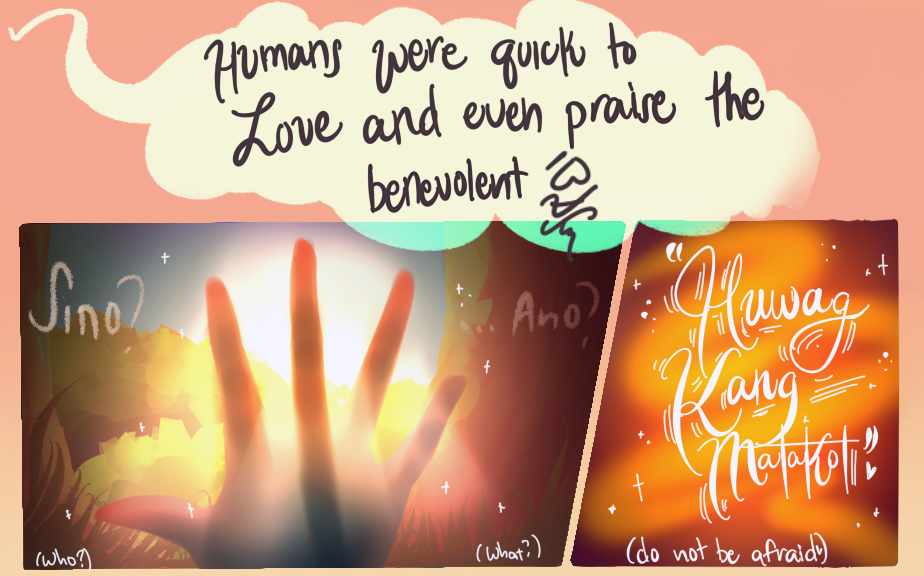 Humans were quick to
Love and even praise the
benevolent
Sino?
... Ano?
(who?)
(what?)
"Huwag
Kang
Matakot"
(do not be afraid)